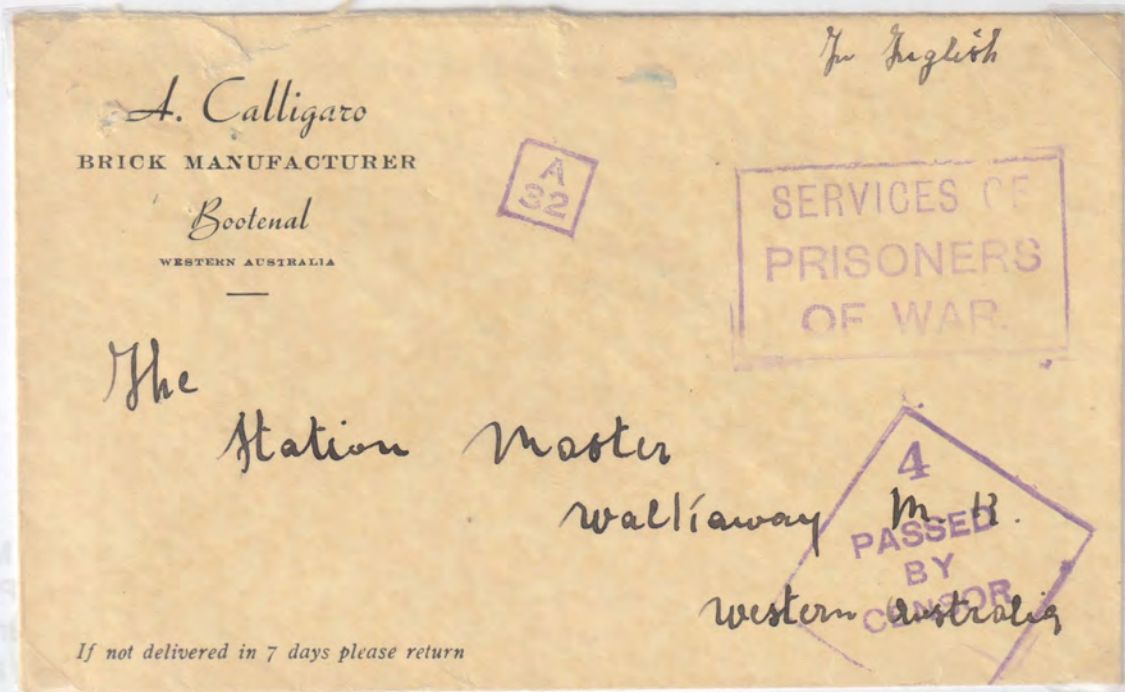 In English
A. Calligaro
BRICK MANUFACTURER
Bootenal
WESTERN AUSTRALIA
A
32
SERVICES OF
PRISONERS
OF WAR.
The
Station Master
Walkaway M. R.
Western Australia
4
PASSED
BY
CENSOR
If not delivered in 7 days please return